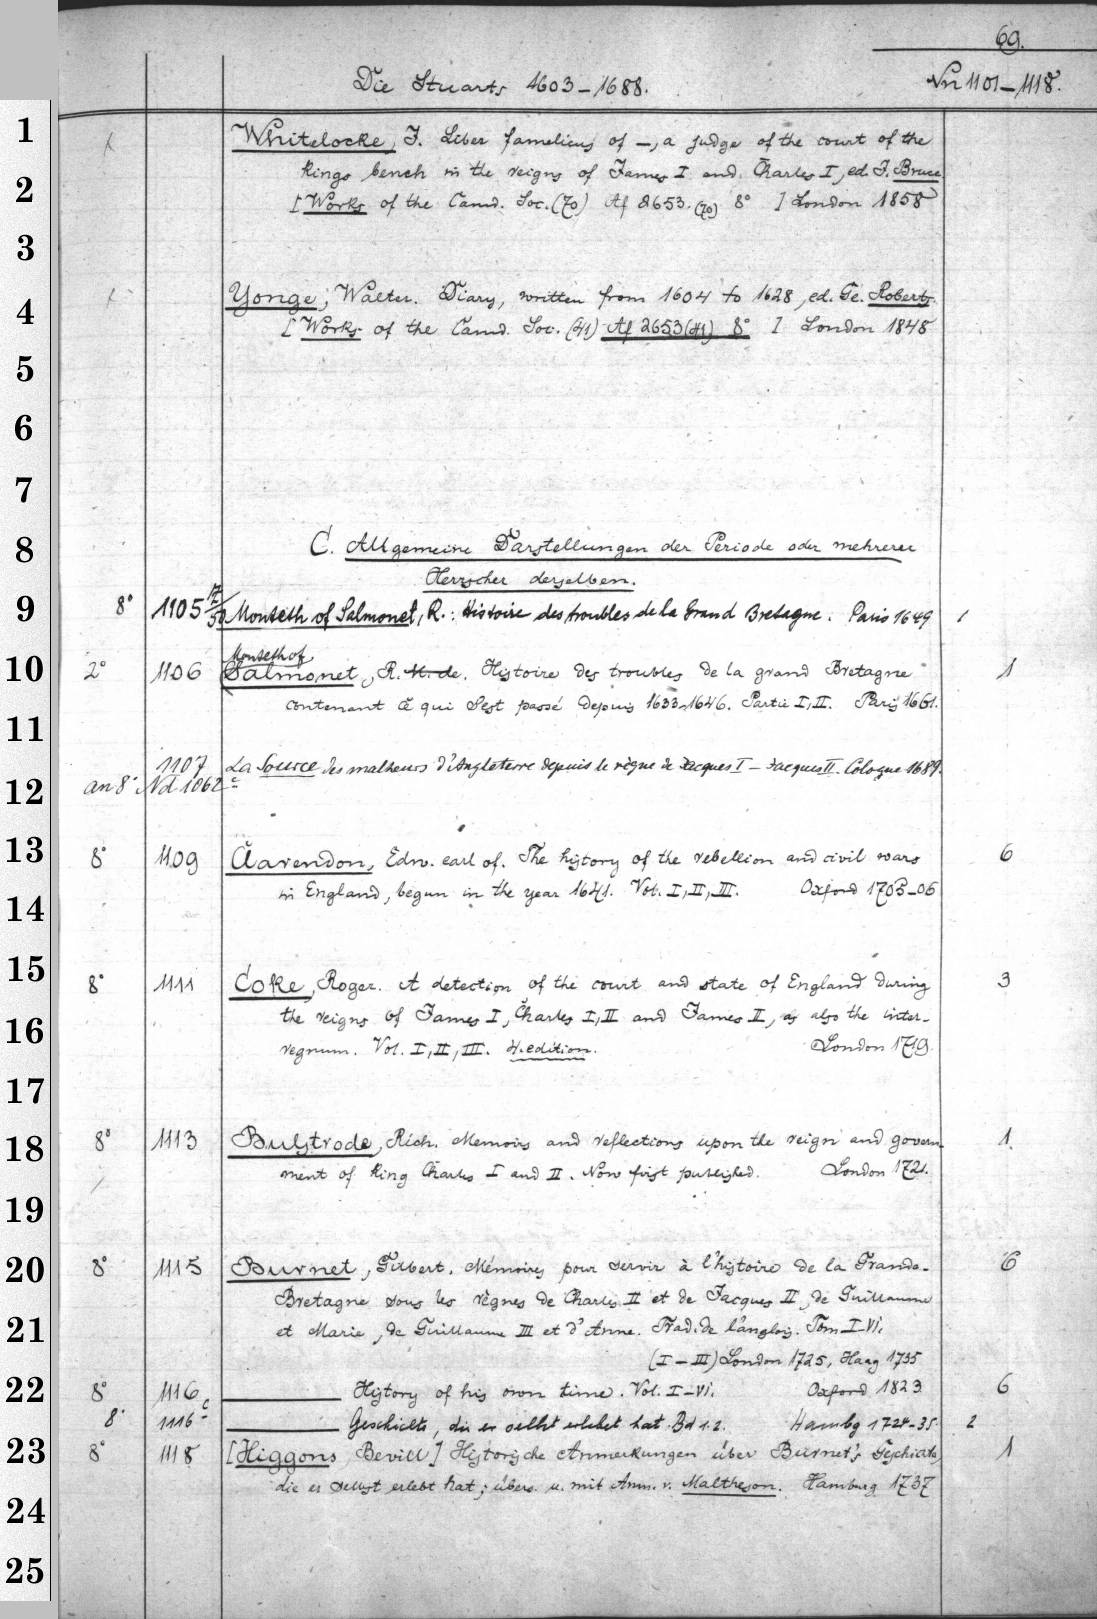 69.
Die Stuarts 1603-1688. Nn 1101-1118.
1
Whitelocke, J. Liber famelicus of -, a judge of the court of the
2
kings bench in the reigns of James I and Charles I, ed. J. Bruce
[Works of the Camd. Soc. (70) Af 2653.(70) 8° ] London 1858
3
4
Yonge, Walter. Diary, written from 1604 to 1628, ed. Ge. Roberts.
[Works of the Camd. Soc. (41) Af 2653(41) 8° ] London 1848
5
6
7
8
C. Allgemeine Darstellungen der Periode oder mehrerer
Herrscher derselben.
9
8° 1105 12/50 Monteth of Salmonet, R.: Histoire des troubles de la Grand Bretagne. Paris 1649 1
Monteth of
10
2° 1106 Salmonet, R. M. de. Histoire des troubles de la grand Bretagne 1
contenant ce qui s'est passé depuis 1633-1646. Partie I, II. Paris 1661.
11
1107 La Source des malheurs d'Angleterre depuis le règne de Jacques I - Jacques II. Cologne 1689.
12
an 8° Nd 1062 c
13
8° 1109 Clarendon, Edw. earl of. The history of the rebellion and civil wars 6
in England, begun in the year 1641. Vol. I, II, III. Oxford 1703-06
14
15
8° 1111 Coke, Roger. A detection of the court and state of England during 3
16
the reigns of James I, Charles I, II and James II, as also the inter-
regnum. Vol. I, II, III. 4. edition. London 1719.
17
18
8° 1113 Bulstrode, Rich. Memoirs and reflections upon the reign and govern- 1.
ment of king Charles I and II. Now first published. London 1721.
19
20
8° 1115 Burnet, Gilbert. Mémoires pour servir à l'histoire de la Grande- 6
Bretagne sous les règnes de Charles II et de Jacques II, de Guillaume
21
et Marie, de Guillaume III et d'Anne. Trad. de l'anglois. Tom I-VI.
(I-III) London 1725, Haag 1735
22
8° 1116 ——— History of his own time. Vol. I-VI. Oxford 1823 6
8° 1116 c ——— Geschichte, die er selbst erlebet hat. Bd 1.2. Hambg 1724-35 2
23
8° 1118 [Higgons, Bevill] Historische Anmerkungen über Burnet's Geschichte, 1
die er selbst erlebt hat; übers. u. mit Anm. v. Mattheson. Hamburg 1737
24
25